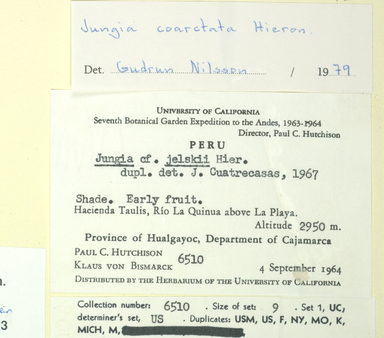 Jungia coarctata Hieron.
Det. Gudrun Nilsson / 1979
UNIVERSITY OF CALIFORNIA
Seventh Botanical Garden Expedition to the Andes, 1963-1964
Director, Paul C. Hutchison
PERU
Jungia cf. jelskii Hier.
dupl. det. J. Cuatrecasas, 1967
Shade. Early fruit.
Hacienda Taulis, Río La Quinua above La Playa.
Altitude 2950 m.
Province of Hualgayoc, Department of Cajamarca
PAUL C. HUTCHISON
KLAUS VON BISMARCK 6510
4 September 1964
DISTRIBUTED BY THE HERBARIUM OF THE UNIVERSITY OF CALIFORNIA
Collection number: 6510 . Size of set: 9 . Set 1, UC,
determiner's set, US . Duplicates: USM, US, F, NY, MO, K,
MICH, M,
n.
3